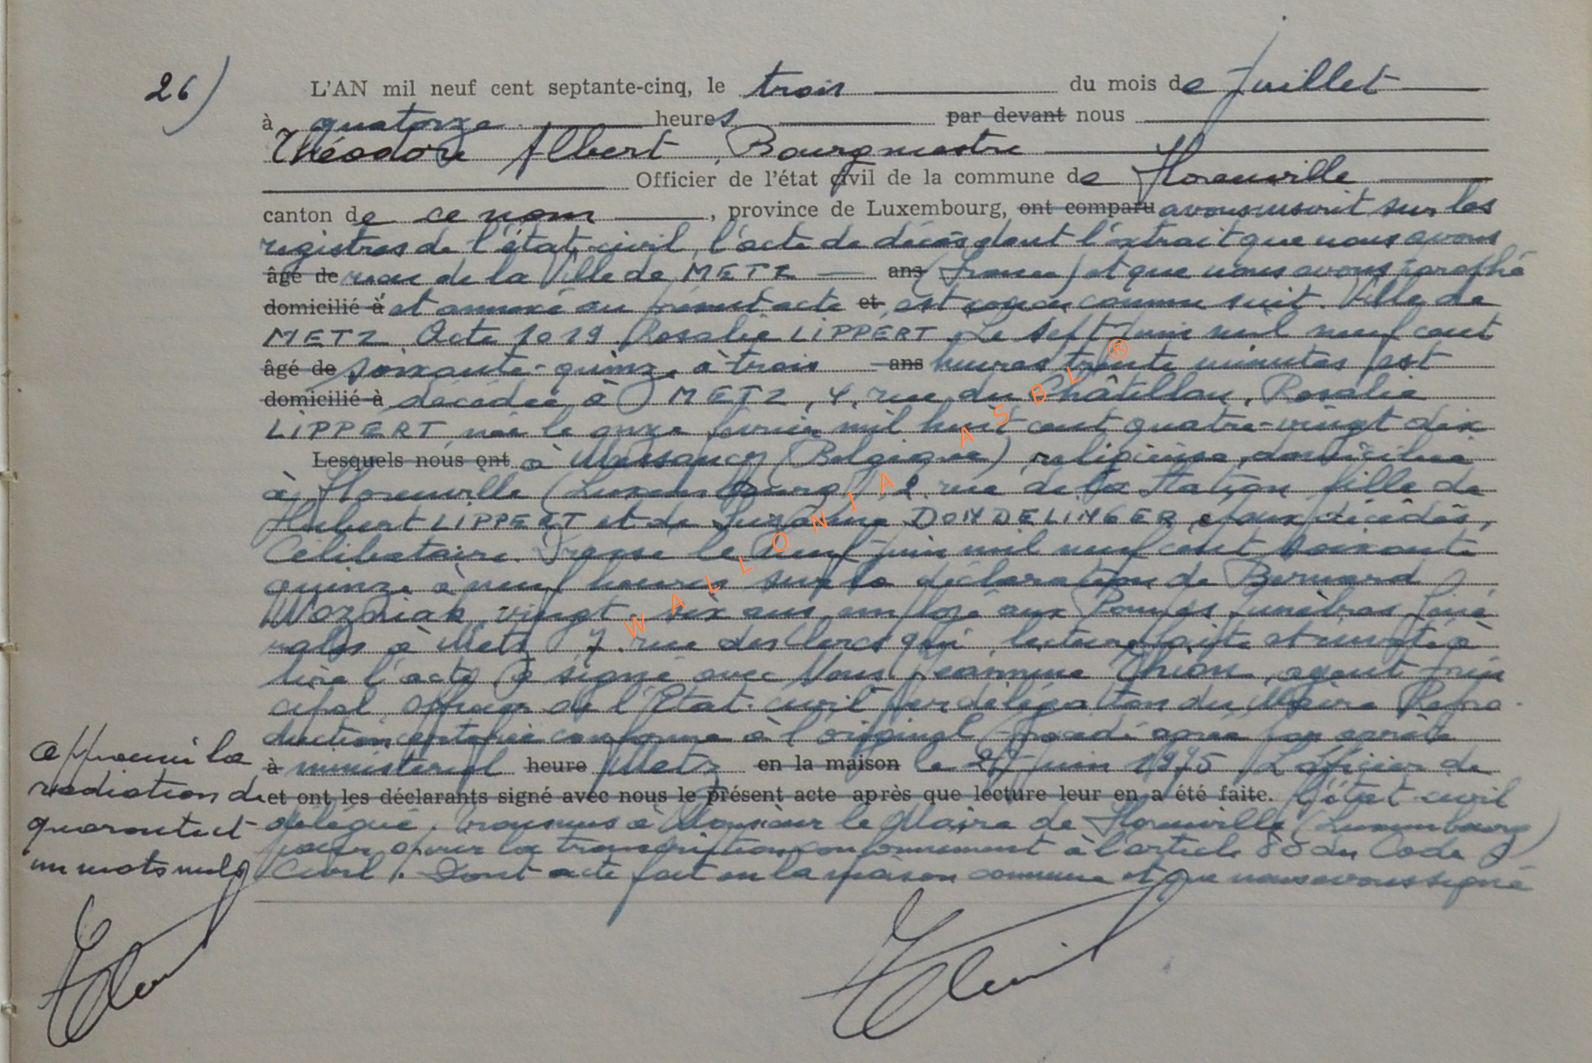 26) L'AN mil neuf cent septante-cinq, le trois du mois de Juillet
à quatorze heures par devant nous
Théodore Albert, Bourgmestre
Officier de l'état civil de la commune de Florenville
canton de ce nom, province de Luxembourg, ont comparu avons inscrit sur les
registres de l'état civil, l'acte de décès dont l'extrait que nous avons
âgé de reçu de la Ville de METZ ans (France) et que nous avons paraphé
domicilié à et annexé au présent acte et est conçu comme suit. Ville de
METZ Acte 1019 Rosalie LIPPERT. Le sept Juin mil neuf cent
âgé de soixante-quinze, à trois ans heures trente minutes est
domicilié à décédée à METZ, 4, rue du Châtillon, Rosalie
LIPPERT, née le onze février mil huit cent quatre-vingt dix
Lesquels nous ont à Messancy (Belgique) religieuse, domiciliée
à Florenville (Luxembourg) 2 rue de la Station fille de
Hubert LIPPERT et de Suzanne DONDELINGER époux décédés,
Célibataire. Dressé le neuf juin mil neuf cent soixante
quinze à neuf heures sur la déclaration de Bernard
Wozniak vingt six ans employé aux Pompes funèbres Géné
rales à Metz 7 rue des Clercs qui lecture faite et invité à
lire l'acte a signé avec Nous Jeannine Thion, agent prin
cipal officier de l'Etat-civil par délégation du Maire Repro-
duction certifiée conforme à l'original procédé agréé par arrêté
à ministériel heure Metz en la maison le 27 juin 1975 L'officier de
et ont les déclarants signé avec nous le présent acte après que lecture leur en a été faite. l'état civil
délégué, transmis à Monsieur le Maire de Florenville (Luxembourg)
pour opérer la transcription conformément à l'article 80 du Code
Civil). Dont acte fait en la maison commune et que nous avons signé
approuvé la
radiation de
quarante et
un mots nuls
WALLONIA ASBL ®